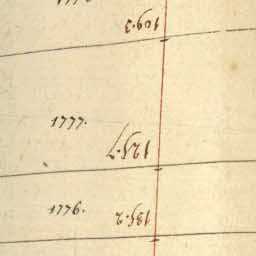 109.3
1777.
125.7
1776.
135.2